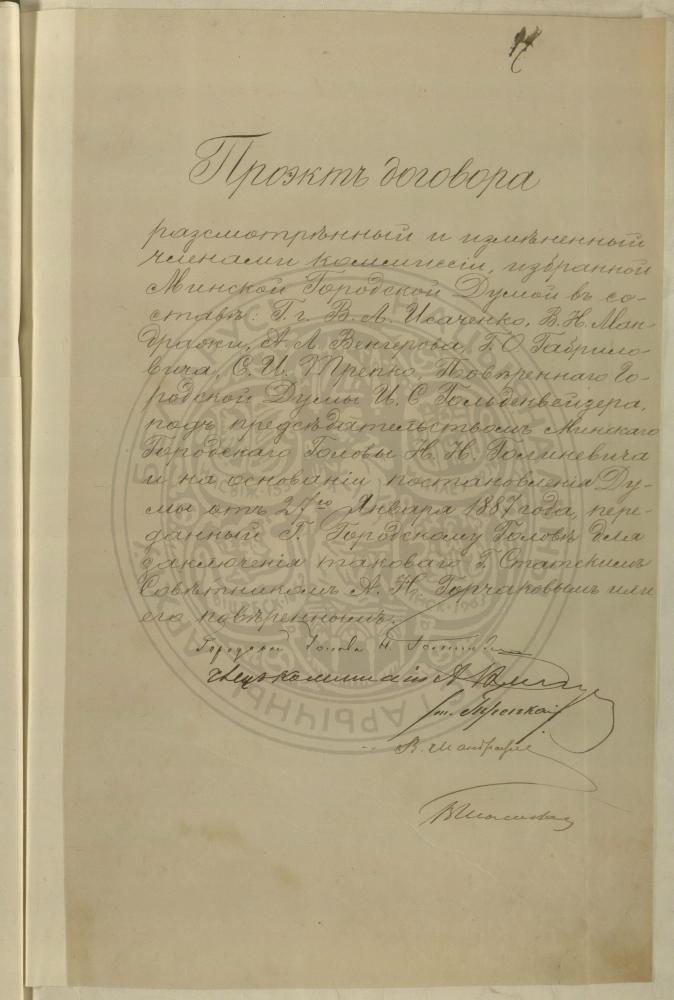 Проэктъ договора
разсмотрѣнный и измѣненный
членами коммиссіи, избранной
Минской Городской Думой въ со-
ставѣ: Г.г. В. Л. Исаченко, В. Н. Ман-
дражи, А. Л. Венгерова, Г. О. Гаврило-
вича, С. И. Трепко. Повѣреннаго Го-
родской Думы И. С. Гольденвейзера,
подъ предсѣдательствомъ Минскаго
Городскаго Головы Н. Н. Голиневича
и на основаніи постановленія Ду-
мы отъ 27го Января 1887 года, пере-
данный Г. Городскому Головѣ для
заключенія таковаго Г. Статскимъ
Совѣтникомъ А. Н. Горчаковымъ или
его повѣреннымъ.
Городской Голова Н. Голиневич
Члены коммиссіи А.